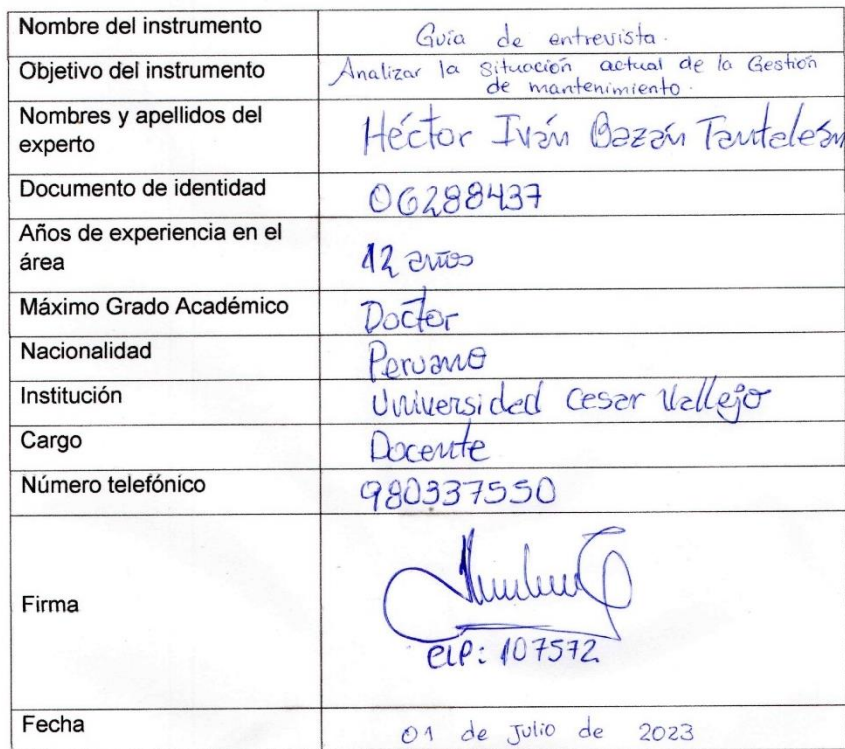 Nombre del instrumento
Guía de entrevista.
Objetivo del instrumento
Analizar la situación actual de la Gestión
de mantenimiento.
Nombres y apellidos del
experto
Héctor Iván Bazán Tantaleán
Documento de identidad
06288437
Años de experiencia en el
área
12 años
Máximo Grado Académico
Doctor
Nacionalidad
Peruano
Institución
Universidad Cesar Vallejo
Cargo
Docente
Número telefónico
980337550
Firma
CIP: 107572
Fecha
01 de Julio de 2023